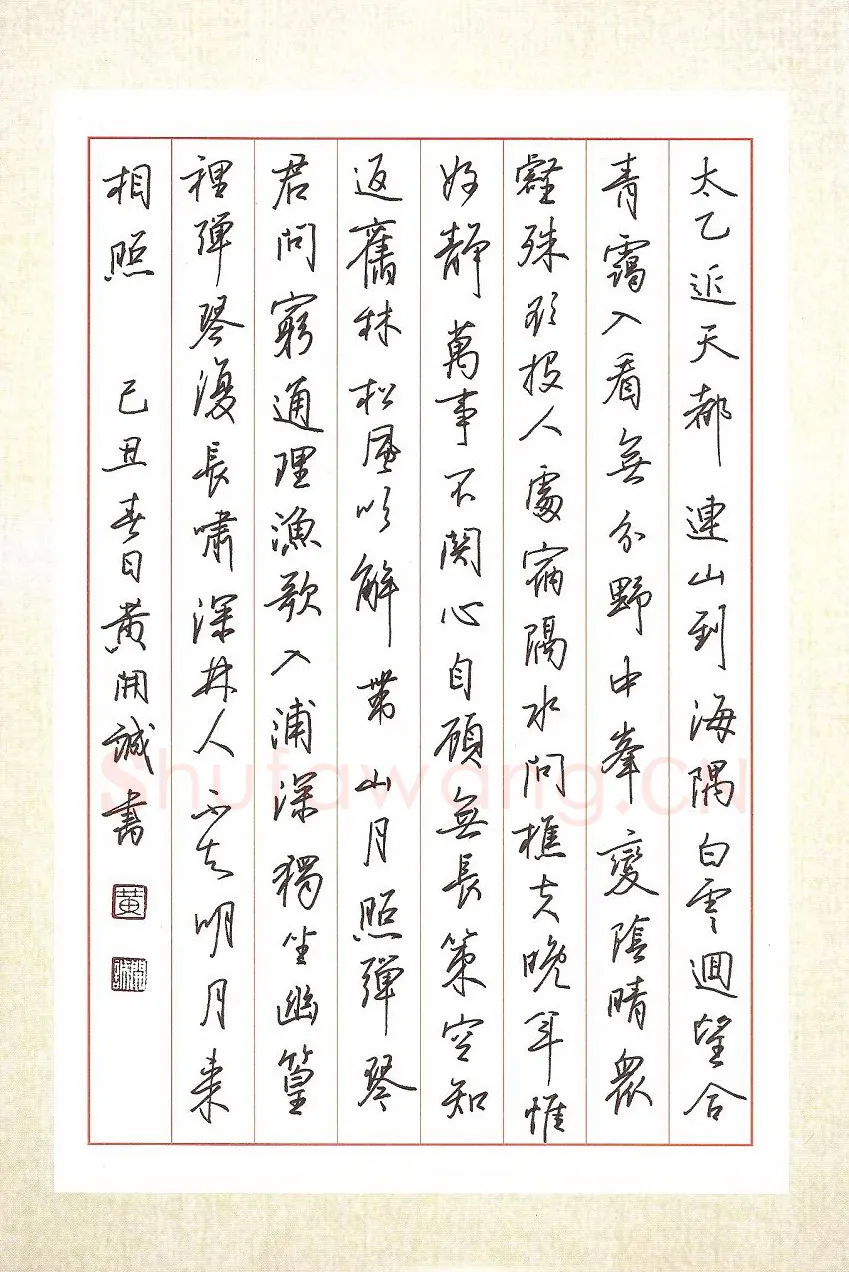 太乙近天都連山到海隅白雲迴望合
青靄入看無分野中峯變陰晴衆
壑殊欲投人處宿隔水問樵夫晚年惟
好静萬事不関心自顧無長策空知
返舊林松風吹解帶山月照彈琴
君問窮通理漁歌入浦深獨坐幽篁
裡彈琴復長嘯深林人不知明月来
相照 己丑春日黄開誠書
黄
開誠
Shufawang.CN